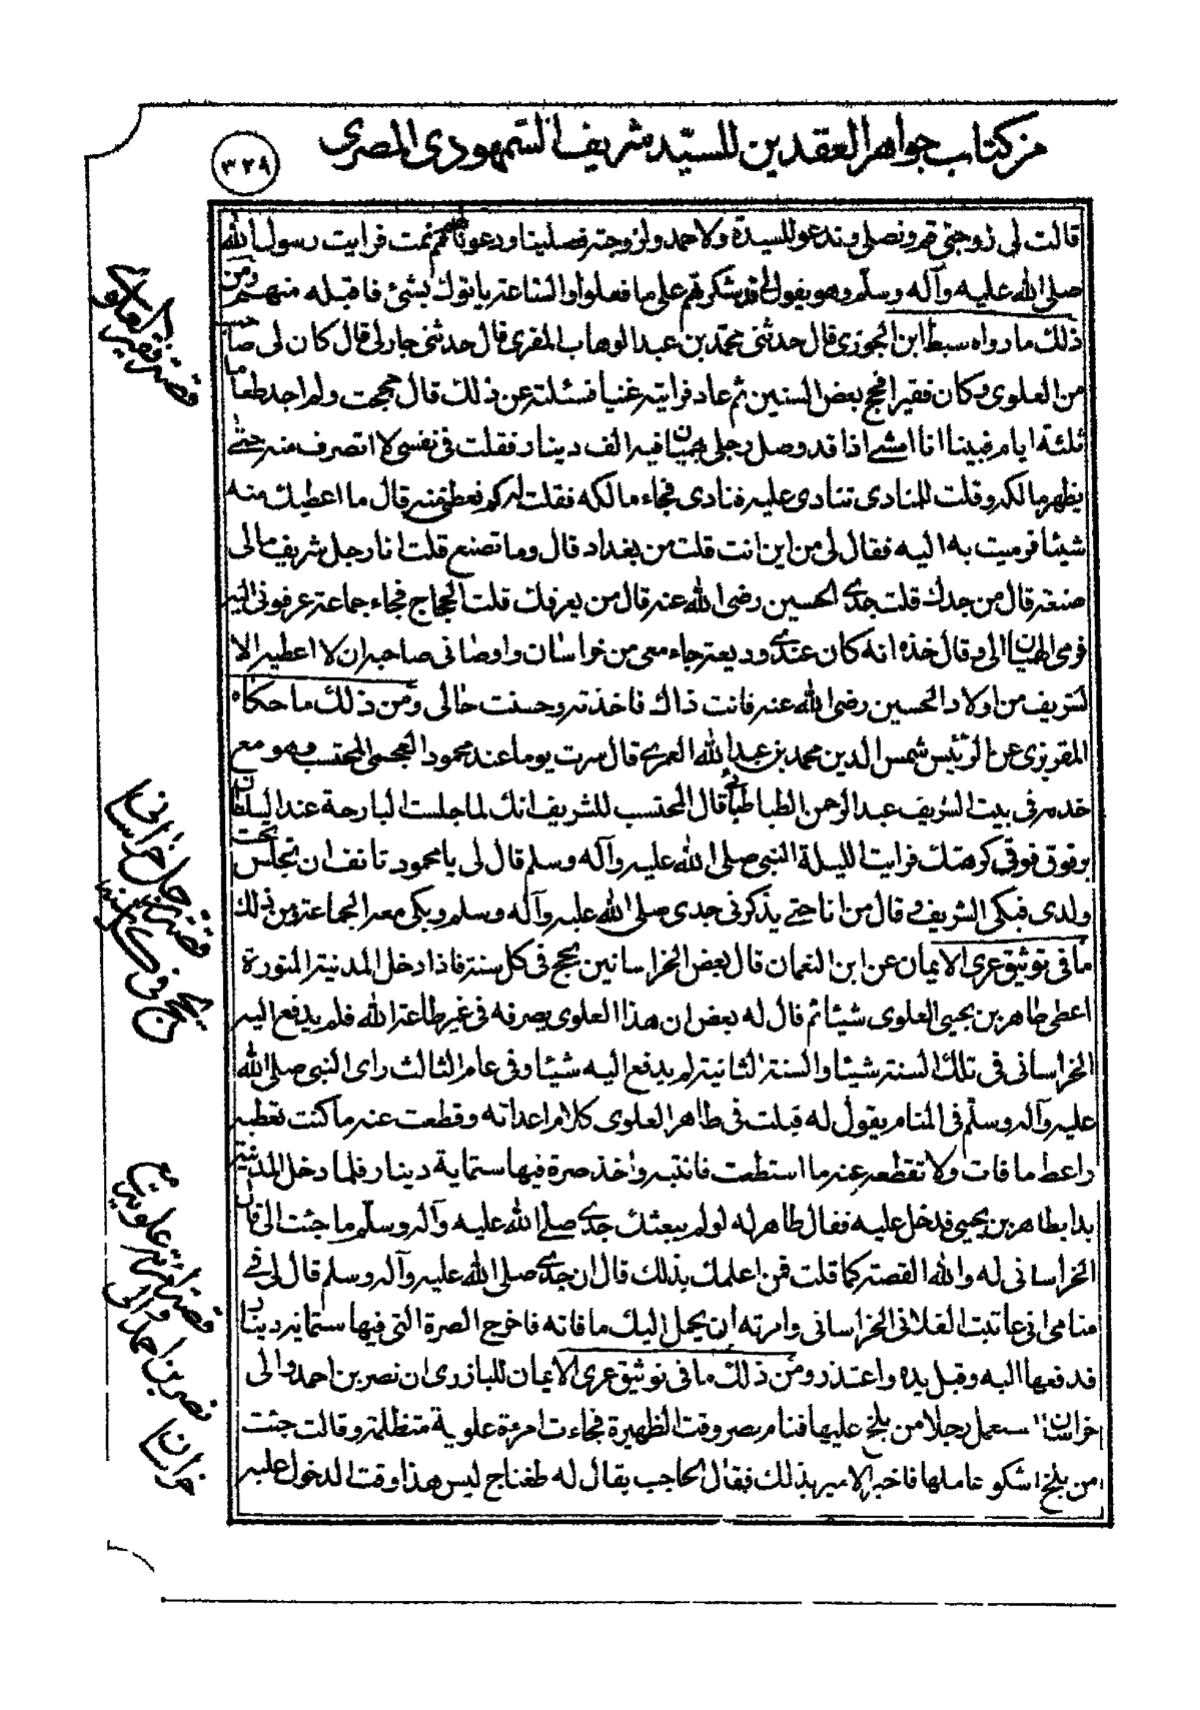 من كتاب جواهر العقدين للسيد شريف السمهودي المصري
٣٢٩
قالت لى زوجتي قم ونصلي وندعو للسيدة ولاحمد ولزوجته فصلينا ودعونا لهم ثم نمت فرايت رسول الله
صلى الله عليه وآله وسلم وهو يقول لي قد شكرتهم على ما فعلوا والساعة ياتوك بشئ فاقبله منهم ومن
ذلك ما رواه سبط ابن الجوزى قال حدثنى محمد بن عبد الوهاب المقرى قال حدثنى جار لى قال كان لى صاحب
من العلوى وكان فقيرا فحج بعض السنين ثم عاد فرايته غنيا فسئلته عن ذلك قال حججت ولم اجد طعاما
ثلثة ايام فبينا انا امشے اذا قد وصل رجلى هميان فيه الف دينار فقلت فى نفسى لا اتصرف منه حتے
يظهر مالكه وقلت للمنادى تنادى عليه فنادى فجاء مالكه فقلت له كم تعطى منه قال ما اعطيك منه
شيئا فرميت به اليه فقال لى من اين انت قلت من بغداد قال وما تصنع قلت انا رجل شريف مالى
صنعة قال من جدك قلت جدے الحسين رضى الله عنه قال من يعرفك قلت الحجاج فجاء جماعة عرفونى اليه
فرمى الهميان الى وقال خذه انه كان عندے وديعة جاء معى من خراسان واوصانى صاحبه ان لا اعطيه الا
لشريف من اولاد الحسين رضى الله عنه فانت ذاك فاخذته وحسنت حالى ومن ذلك ما حكاه
المقريزى عن الرئيس شمس الدين محمد بن عبد الله العمرى قال سرت يوما عند محمود العجمى المحتسب وهو مع
خدمه فى بيت الشريف عبد الرحمن الطباطبائى قال المحتسب للشريف انك لما جلست البارحة عند السلطان
برقوق فوقى كرهتك فرايت الليلة النبى صلى الله عليه وآله وسلم قال لى يا محمود تانف ان تجلس تحت
ولدى فبكى الشريف وقال من انا حتے يذكرنى جدى صلى الله عليه وآله وسلم وبكى معه الجماعة ومن ذلك
ما فى توثيق عرى الايمان عن ابن النعمان قال بعض الخراسانين يحج فى كل سنة فاذا دخل المدينة المنورة
اعطى طاهر بن يحيى العلوى شيئا ثم قال له بعض ان هذا العلوى يصرفه فى غير طاعة الله فلم يدفع اليه
الخراسانى فى تلك السنة شيئا والسنة الثانية لم يدفع اليه شيئا وفى عام الثالث راى النبى صلى الله
عليه وآله وسلم فى المنام يقول له قبلت فى طاهر العلوى كلام اعدائه وقطعت عنه ما كنت تعطيه
راعط ما فات ولا تقطعه عنه ما استطعت فانتبه واخذ صرة فيها ستماية دينار فلما دخل المدينة
بدا بطاهر بن يحيى فدخل عليه فقال طاهر له لو لم يبعثك جدے صلے الله عليه وآله وسلم ما جئت الى قال
الخراسانى له والله القصة كما قلت فمن اعلمك بذلك قال ان جدے صلى الله عليه وآله وسلم قال لى فى
منامى انى عاتبت الفلانى الخراسانى وامرته ان يحمل اليك ما فاته فاخرج الصرة التى فيها ستماية دينار
فدفعها اليه وقبل يده واعتذر ومن ذلك ما فى توثيق عرى الايمان للبازرى ان نصر بن احمد والى
خراسان استعمل رجلا من بلخ عليها فنام نصر وقت الظهيرة فجاءت امرءة علوية متظلمة وقالت جئت
من بلخ اشكو عاملها فاخبر الامير بذلك فقال الحاجب يقال له طغتاج ليس هذا وقت الدخول عليه
قصة فقير العلوى
قصة رجل خراسانى
يحج فى كل سنة
قصة امرءة علوية مع
نصر بن احمد والى
خراسان